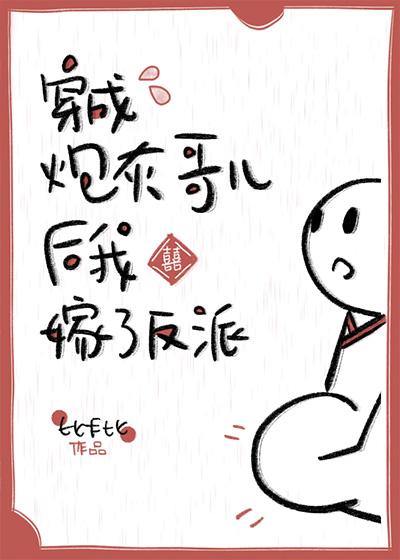 穿成
炮灰哥儿
后我 囍
嫁了反派
比卡比
作品